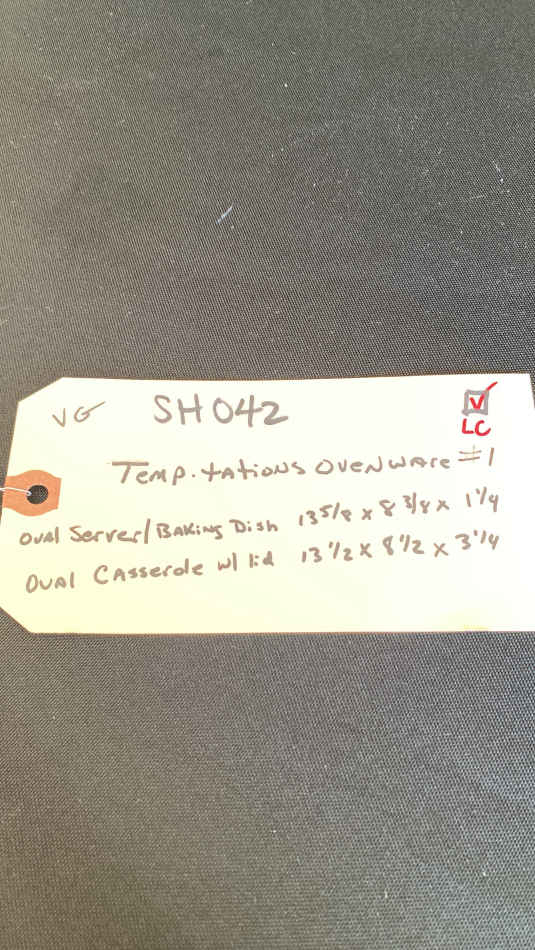 VG SH042 V
LC
Temp.tations Ovenware #1
Oval Server/Baking Dish 13 5/8 x 8 3/8 x 1 1/4
Oval Casserole w/ lid 13 1/2 x 8 1/2 x 3 1/4